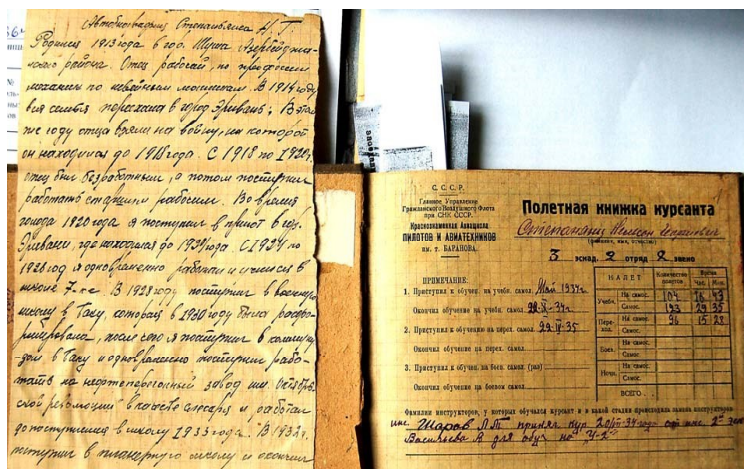 Автобиография Степаньянса Н. Г.
Родился 1913 года в гор. Шуша Азербейджан-
ского района. Отец рабочий, по профессии
механик по швейным машинам. В 1914 году
вся семья переехала в город Эривань. В этом
же году отца взяли на войну, на которой
он находился до 1918 года. С 1918 по 1920 г.
отец был безработным, а потом поступил
работать старшим рабочим. Во время
голода 1920 года я поступил в приют в гор.
Эривани, где находился до 1924 года. С 1924 по
1928 год я одновременно работал и учился в
школе 7-ке. В 1928 году поступил в военную
школу в Баку, которая в 1930 году была расфор-
мирована, после чего я поступил в
в Баку и одновременно поступил рабо-
тать на нефтеперегонный завод им. Октябрь-
ской революции в качестве слесаря и работал
до поступления в школу 1933 года. В 1932 г.
поступил в планерную школу и окончил
С. С. С. Р.
Главное Управление
Гражданского Воздушного Флота
при СНК СССР.
Краснознаменная Авиашкола
ПИЛОТОВ И АВИАТЕХНИКОВ
им. т. БАРАНОВА.
Полетная книжка курсанта
Степанянц Нельсон
(фамилия, имя, отчество)
3 эскад. 2 отряд 2 звено
ПРИМЕЧАНИЕ:
1. Приступил к обучен. на учебн. самол. Май 1934 г.
Окончил обучение на учебн. самол.
2. Приступил к обучению на перех. самол.
Окончил обучение на перех. самол.
3. Приступил к обучен. на боев. самол. (раз)
Окончил обучение на боевом самол.
НАЛЕТ Количество полетов Время Час. Мин.
Учебн. На самос. 104 16 43
Самос. 193 29 35
Пере-ход. На самос. 96 15 28
Самос.
Боев. На самос.
Самос.
Ночн. На самос.
Самос.
ВСЕГО
Фамилии инструкторов, у которых обучался курсант и в какой стадии происходила замена инструкторов
инс. Шаров Л.М. принял кур. от инс. 2го звена
Васильева А для обуч на У-2